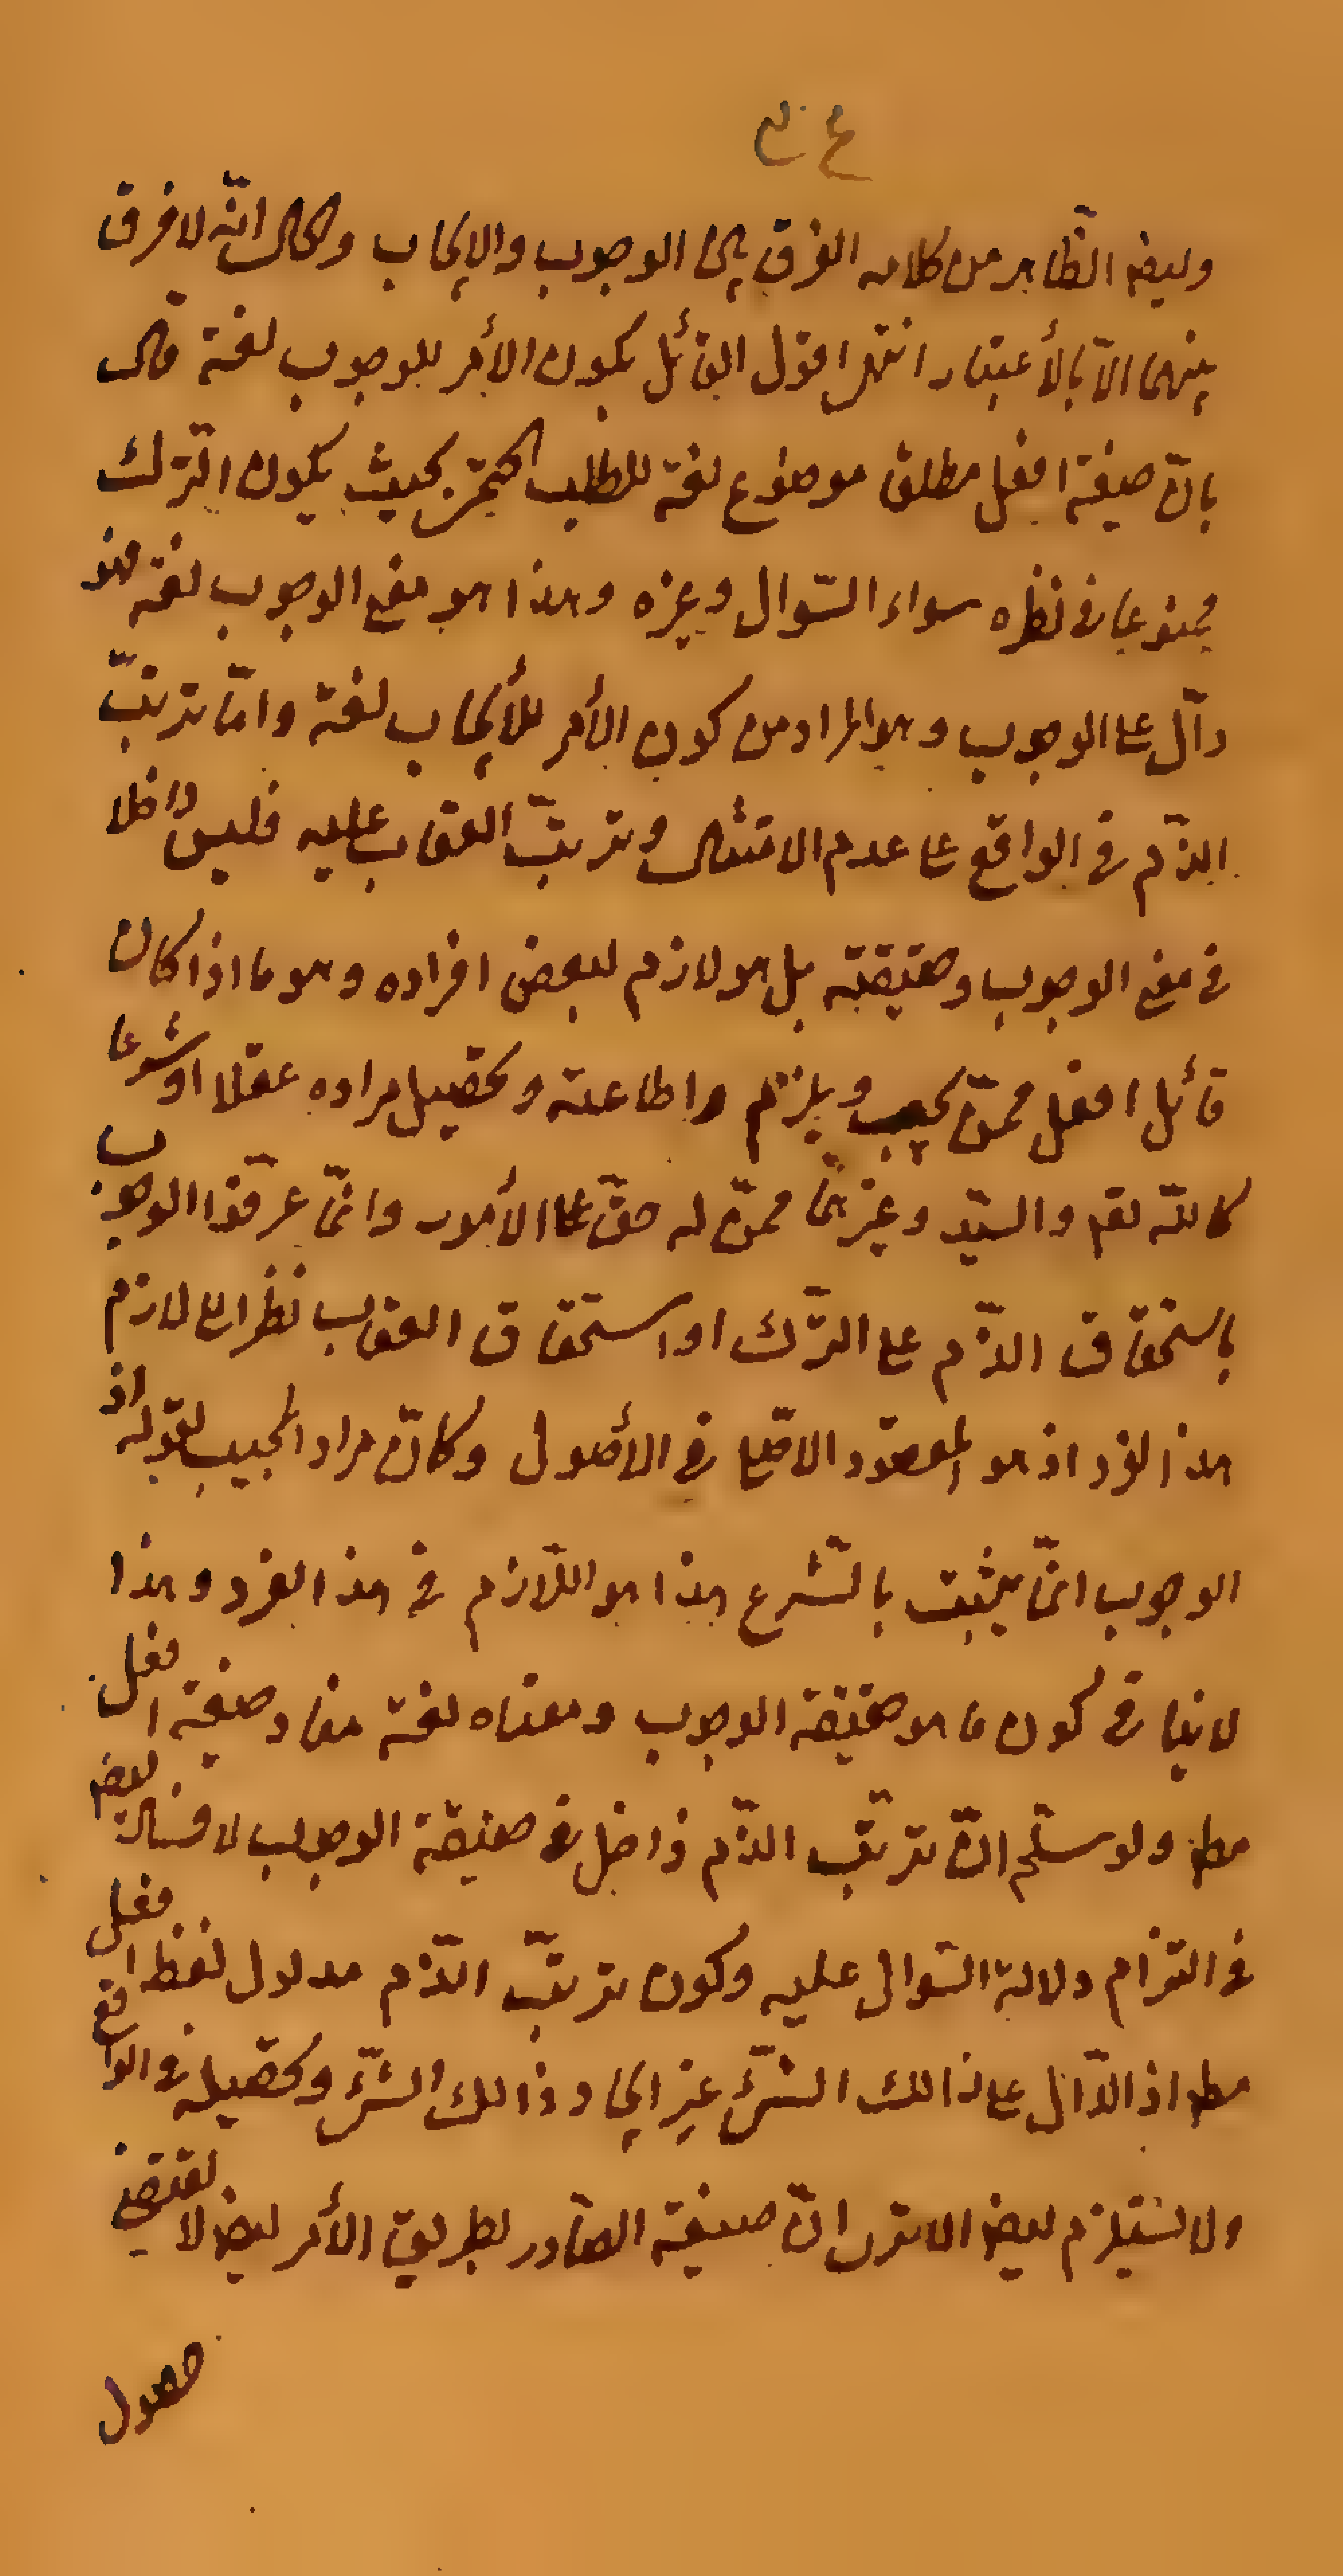 وليضا الظاهر من كلامه الفرق بين الوجوب والايجاب والحال انّه لا فرق
بينهما الاّ بالأعتبار انتهى اقول القائل بكون الأمر للوجوب لغة قال
بانّ صيغة افعل مطلقا موضوع لغة للطلب الحتمى بحيث يكون الترك
ممنوعا فى نظره سواء السّوال وغيره وهذا هو معنى الوجوب لغة فهو
دآلّ على الوجوب وهو المراد من كون الأمر للأيجاب لغة وامّا ترتّب
الذّم فى الواقع على عدم الامتثال وترتّب العقاب عليه فليس داخلا
فى معنى الوجوب وحقيقته بل هو لازم لبعض افراده وهو ما اذا كان
قائل افعل ممّن يجب ويلزم اطاعته وتحصيل مراده عقلا او شرعا
كاللّه تعم والسيّد وغيرهما ممّن له حقّ على المأمور وانّما عرّفوا الوجوب
باستحقاق الذّم على التّرك او استحقاق العقاب نظرا الى لازم
هذا الفرد اذ هو المقصود الاصلى فى الأصول وكانّ مراد المجيب بقوله اذ
الوجوب انّما يثبت بالشّرع هذا هو اللّازم فى هذا الفرد وهذا
لا ينافى كون ما هو حقيقة الوجوب ومعناه لغة مفاد صيغة افعل
مطا ولو سلّم انّ ترتّب الذّم داخل فى حقيقة الوجوب لا فساد ليضا
فى التزام دلالة السّوال عليه وكون ترتّب الذّم مدلول لفظ افعل
مطا اذ الدّالّ على ذالك الشّئ غير ايجاد ذالك الشّئ وتحصيله فى الواقع
ولا يستلزم ليضا الا ترى انّ صيغة الصّادر بطريق الأمر ليضا لا تقتضى
حصول